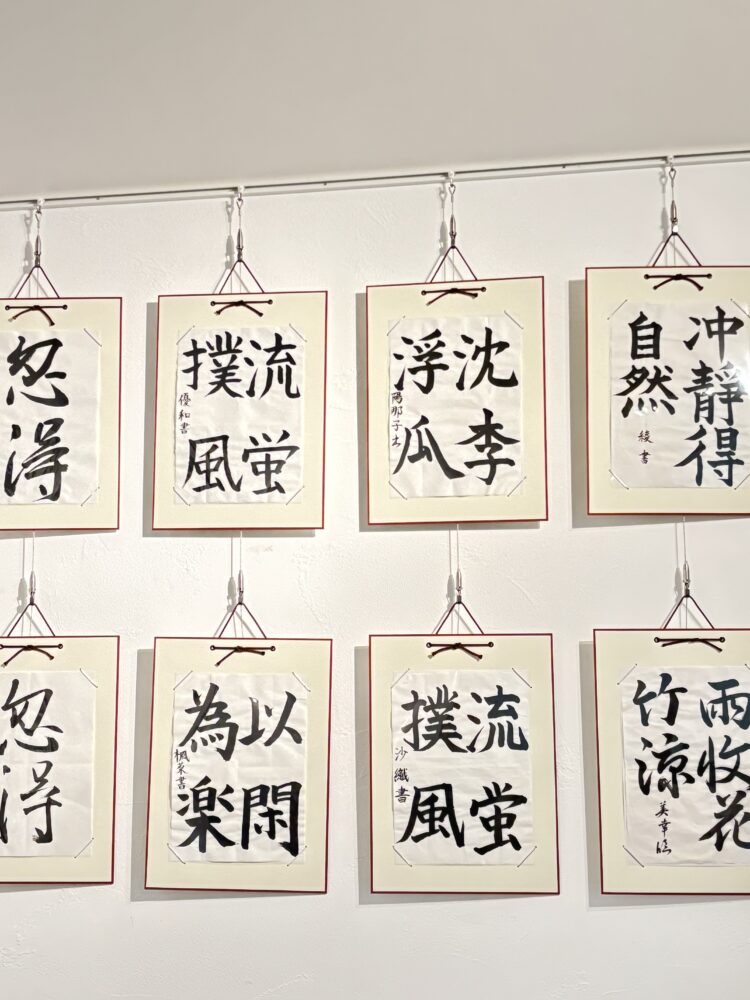 忽得
流蛍
撲風
優和書
沈李
浮瓜
陽那子书
冲靜得
自然
綾書
忽得
以閑
為楽
楓菜書
流蛍
撲風
沙織書
雨收花
竹涼
美幸臨